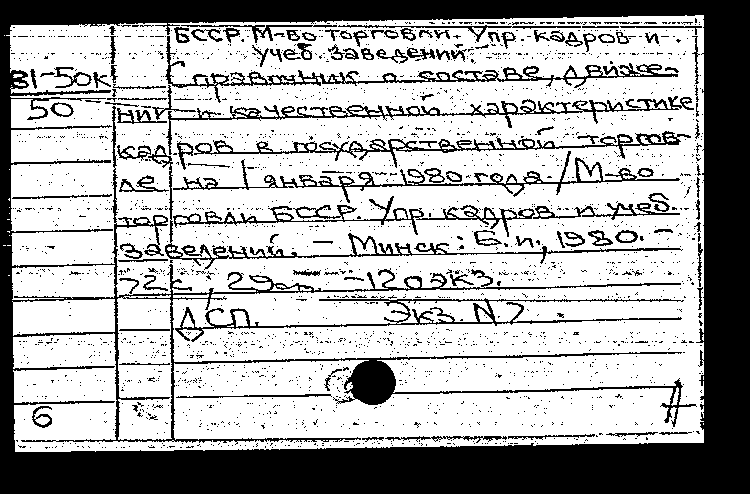 БССР. М-во торговли. Упр. кадров и
учеб. заведений.
81-50к Справочник о составе, движе-
50 нии и качественной характеристике
кадров в государственной торгов-
ле на 1 января 1980 года. / М-во
торговли БССР. Упр. кадров и учеб.
заведений. - Минск: Б.и., 1980. -
72с., 29см. - 120экз.
ДСП. Экз. N 7
6 А